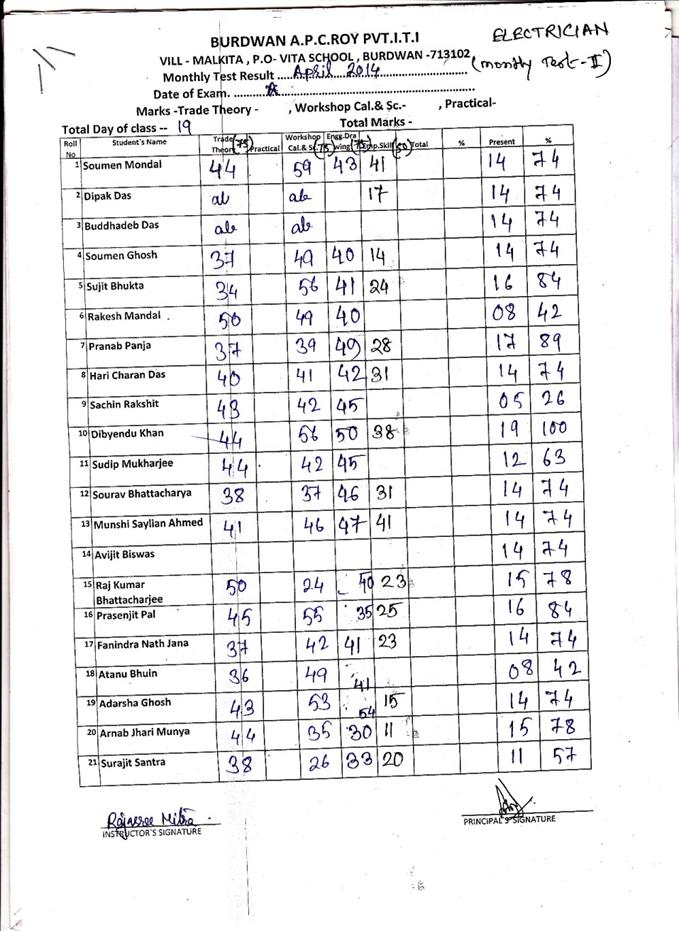 BURDWAN A.P.C.ROY PVT.I.T.I ELECTRICIAN
VILL - MALKITA , P.O- VITA SCHOOL , BURDWAN -713102 (monthly Test-II)
Monthly Test Result .....April 2014.....
Date of Exam. .....
Marks -Trade Theory - , Workshop Cal.& Sc.- , Practical-
Total Day of class -- 19 Total Marks -
Roll No Student's Name Trade Theory (75) Practical Workshop Cal.& Sc (75) Engg.Drawing (75) Emp.Skill (50) Total % Present %
1 Soumen Mondal 44 59 43 41 14 74
2 Dipak Das ab ab 17 14 74
3 Buddhadeb Das ab ab 14 74
4 Soumen Ghosh 37 49 40 14 14 74
5 Sujit Bhukta 34 56 41 24 16 84
6 Rakesh Mandal 50 49 40 08 42
7 Pranab Panja 37 39 49 28 17 89
8 Hari Charan Das 40 41 42 31 14 74
9 Sachin Rakshit 43 42 45 05 26
10 Dibyendu Khan 44 56 50 38 19 100
11 Sudip Mukharjee 44 42 45 12 63
12 Sourav Bhattacharya 38 37 46 31 14 74
13 Munshi Saylian Ahmed 41 46 47 41 14 74
14 Avijit Biswas 14 74
15 Raj Kumar Bhattacharjee 50 24 40 23 15 78
16 Prasenjit Pal 45 55 35 25 16 84
17 Fanindra Nath Jana 37 42 41 23 14 74
18 Atanu Bhuin 36 49 41 08 42
19 Adarsha Ghosh 43 53 54 15 14 74
20 Arnab Jhari Munya 44 35 30 11 15 78
21 Surajit Santra 38 26 33 20 11 57
Rajasree Mitra
INSTRUCTOR'S SIGNATURE
PRINCIPAL'S SIGNATURE